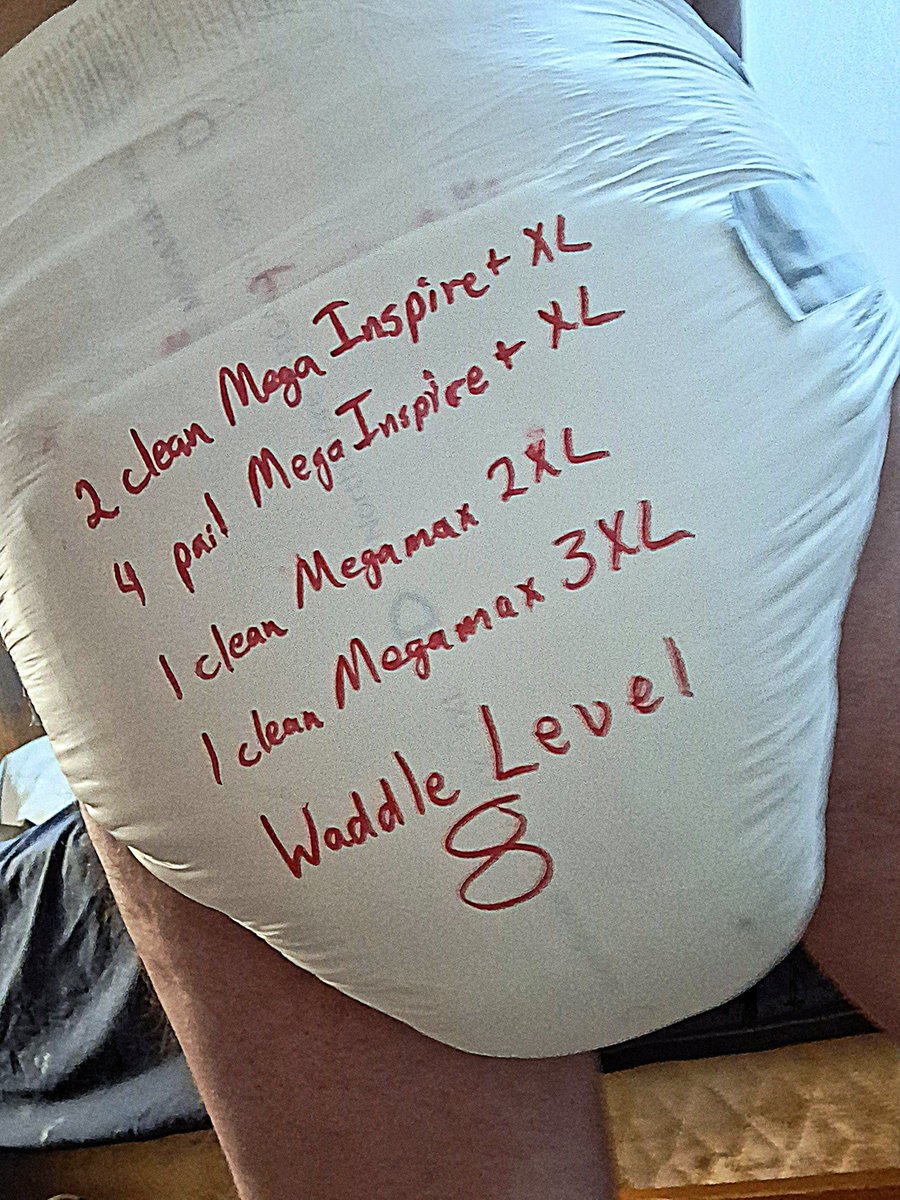 2 clean Mega Inspire+ XL
4 pail Mega Inspire+ XL
1 clean Megamax 2XL
1 clean Megamax 3XL
Waddle Level
8